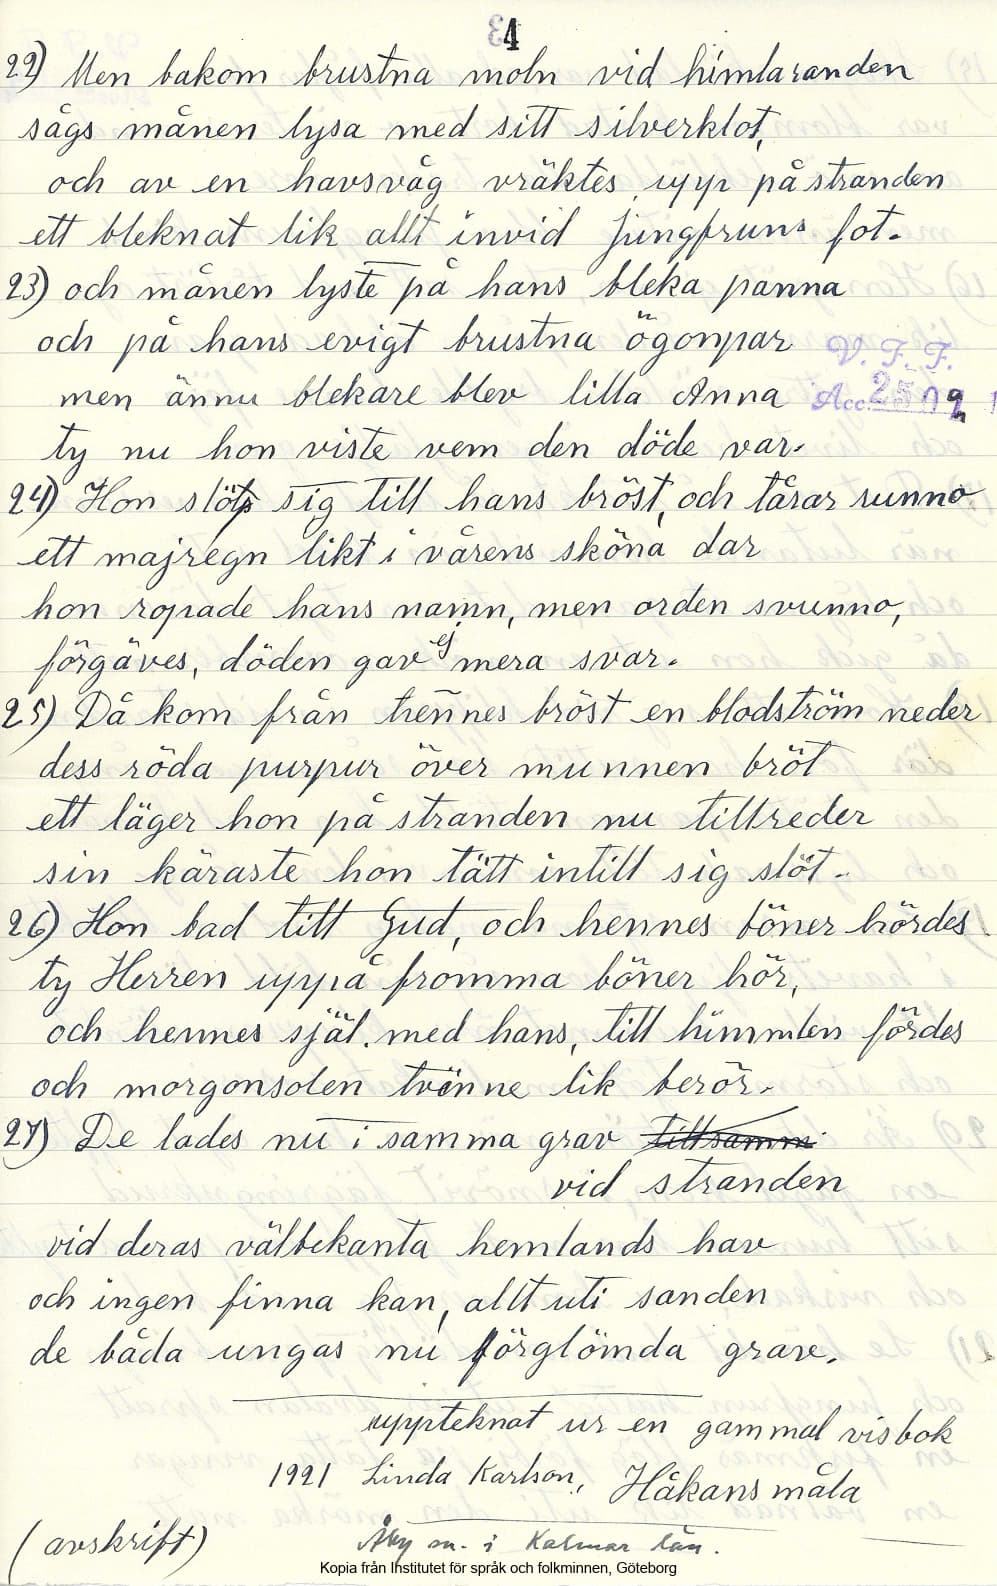 4
22) Men bakom brustna moln vid himlaranden
sågs månen lysa med sitt silverklot,
och av en havsvåg vräktes upp på stranden
ett bleknat lik allt invid jungfruns fot.
23) och månen lyste på hans bleka panna
och på hans evigt brustna ögonpar
V. F. F.
men ännu blekare blev lilla Anna
Acc. 2509
ty nu hon viste vem den döde var.
24) Hon slöt sig till hans bröst, och tårar runno
ett majregn likt i vårens sköna dar
hon ropade hans namn, men orden svunno,
förgäves, döden gav ej mera svar.
25) Då kom från hennes bröst en blodström neder
dess röda purpur över munnen bröt
ett läger hon på stranden nu tillreder
sin käraste hon tätt intill sig slöt.
26) Hon bad till Gud, och hennes böner hördes
ty Herren uppå fromma böner hör,
och hennes själ. med hans, till himmlen fördes
och morgonsolen tvenne lik berör.
27) De lades nu i samma grav tillsamm
vid stranden
vid deras välbekanta hemlands hav
och ingen finna kan, allt uti sanden
de båda ungas nu förglömda grav.
uppteknat ur en gammal visbok
1921 Linda Karlson, Håkansmåla
(avskrift) Åby sn. i Kalmar län.
Kopia från Institutet för språk och folkminnen, Göteborg